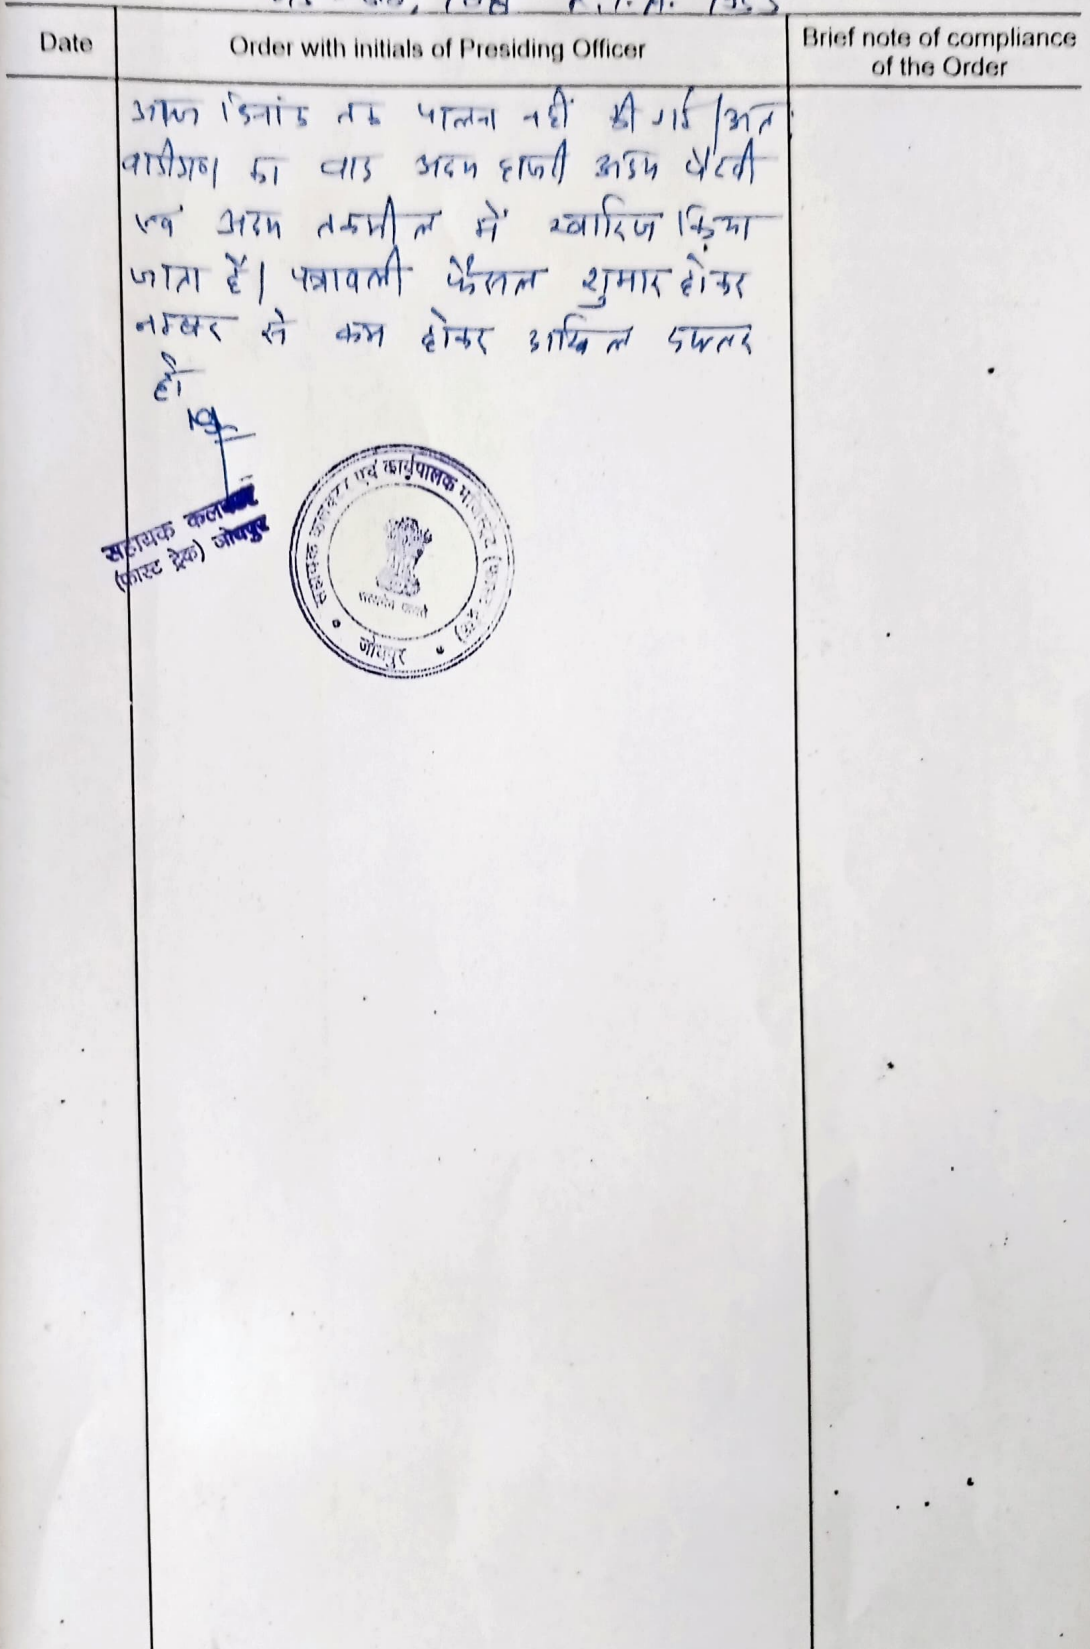 R.T.A. 1955
Date
Order with initials of Presiding Officer
Brief note of compliance
of the Order
आज दिनांक तक पालना नहीं की गई। अतः
वादीगण का वाद अदम हाजरी अदम पैरवी
एवं अदम तकमील में खारिज किया
जाता है। पत्रावली फैसल शुमार होकर
नम्बर से कम होकर दाखिल दफ्तर
हो
सहायक कलक्टर
(फास्ट ट्रेक) जोधपुर
सहायक कलक्टर एवं कार्यपालक मजिस्ट्रेट (फास्ट ट्रेक)
सत्यमेव जयते
जोधपुर